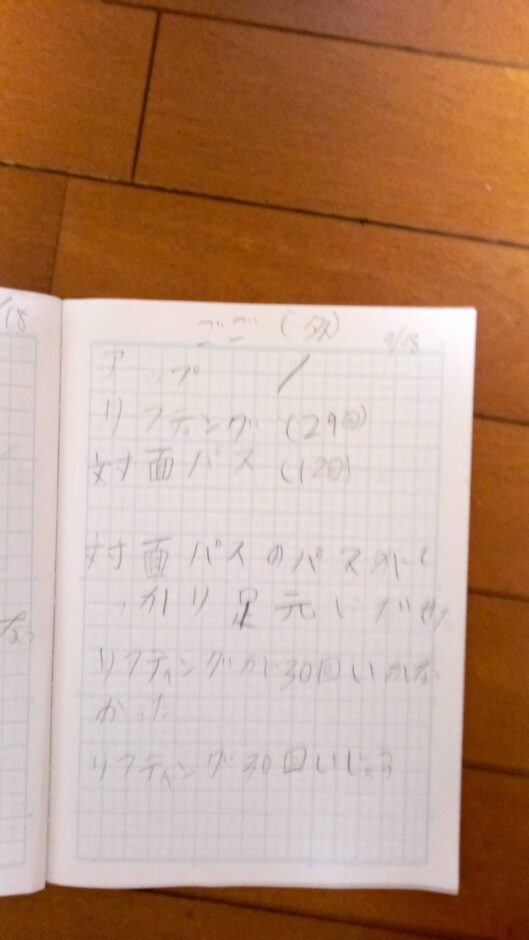 /18
ごご ( ) 9/18
アップ /
リフティング (29回)
対面パス (12回)
対面パスのパスがし
っかり足元にだせた
リフティングが30回いかな
かった
リフティング30回いじょう